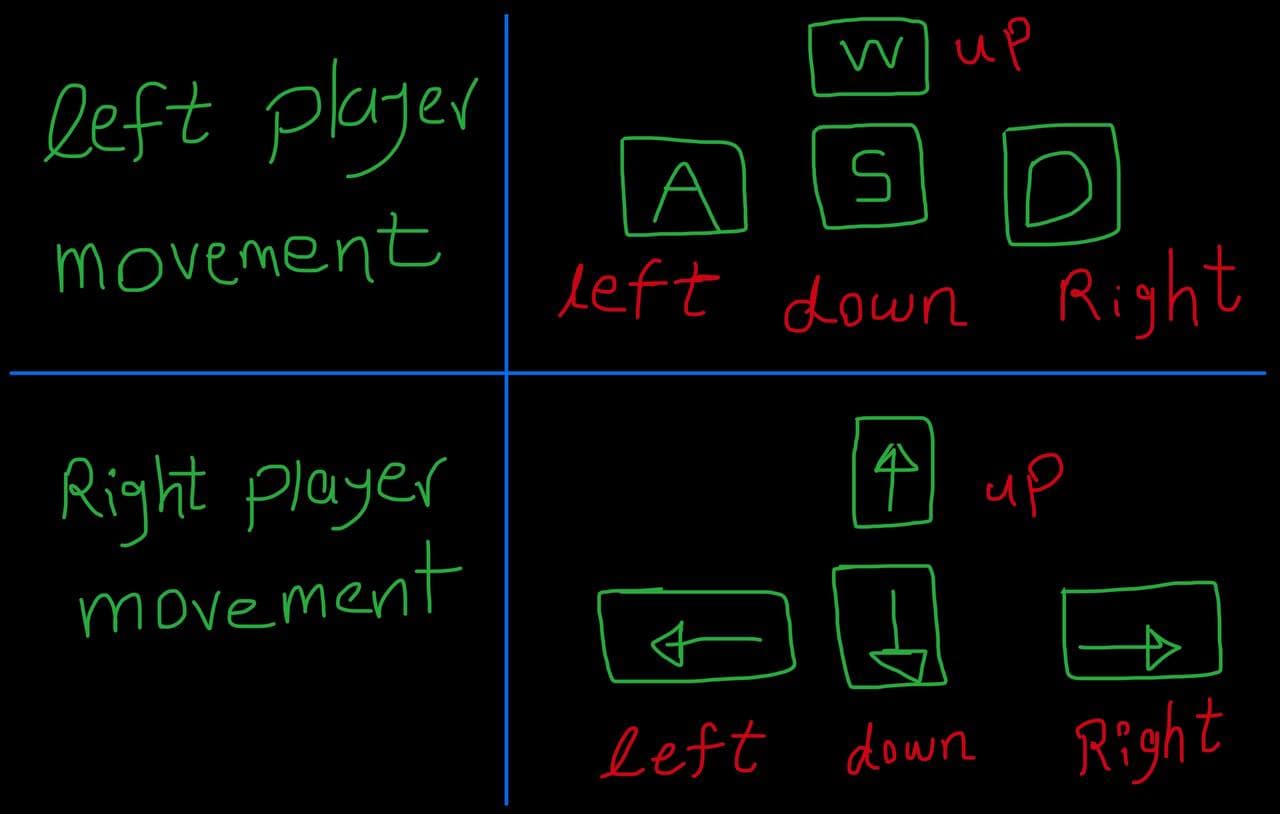 left player
movement
W up
A S D
left down Right
Right player
movement
↑ up
← ↓ →
left down Right